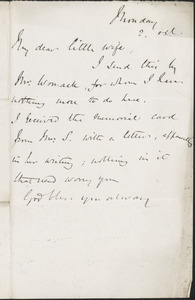 Monday
2. Oct.
My dear little wife,
I send this by
Mrs. Womack, for whom I have
nothing more to do here.
I received the memorial card
from Mrs. S. with a letter, apparently
in her writing; nothing in it
that need worry you
God bless you always